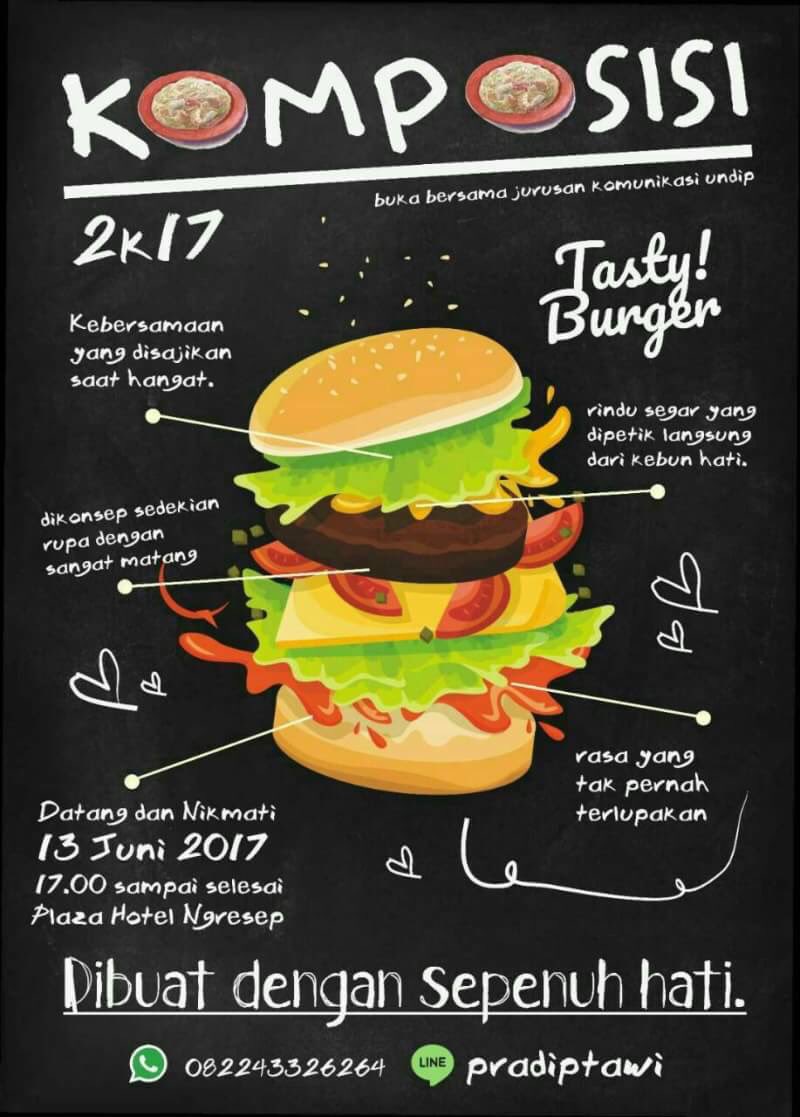 KOMPOSISI
buka bersama jurusan komunikasi undip
2k17
Tasty!
Burger
Kebersamaan
yang disajikan
saat hangat.
rindu segar yang
dipetik langsung
dari kebun hati.
dikonsep sedekian
rupa dengan
sangat matang
rasa yang
tak pernah
terlupakan
Datang dan Nikmati
13 Juni 2017
17.00 sampai selesai
Plaza Hotel Ngresep
Dibuat dengan sepenuh hati.
082243326264
LINE
pradiptawi